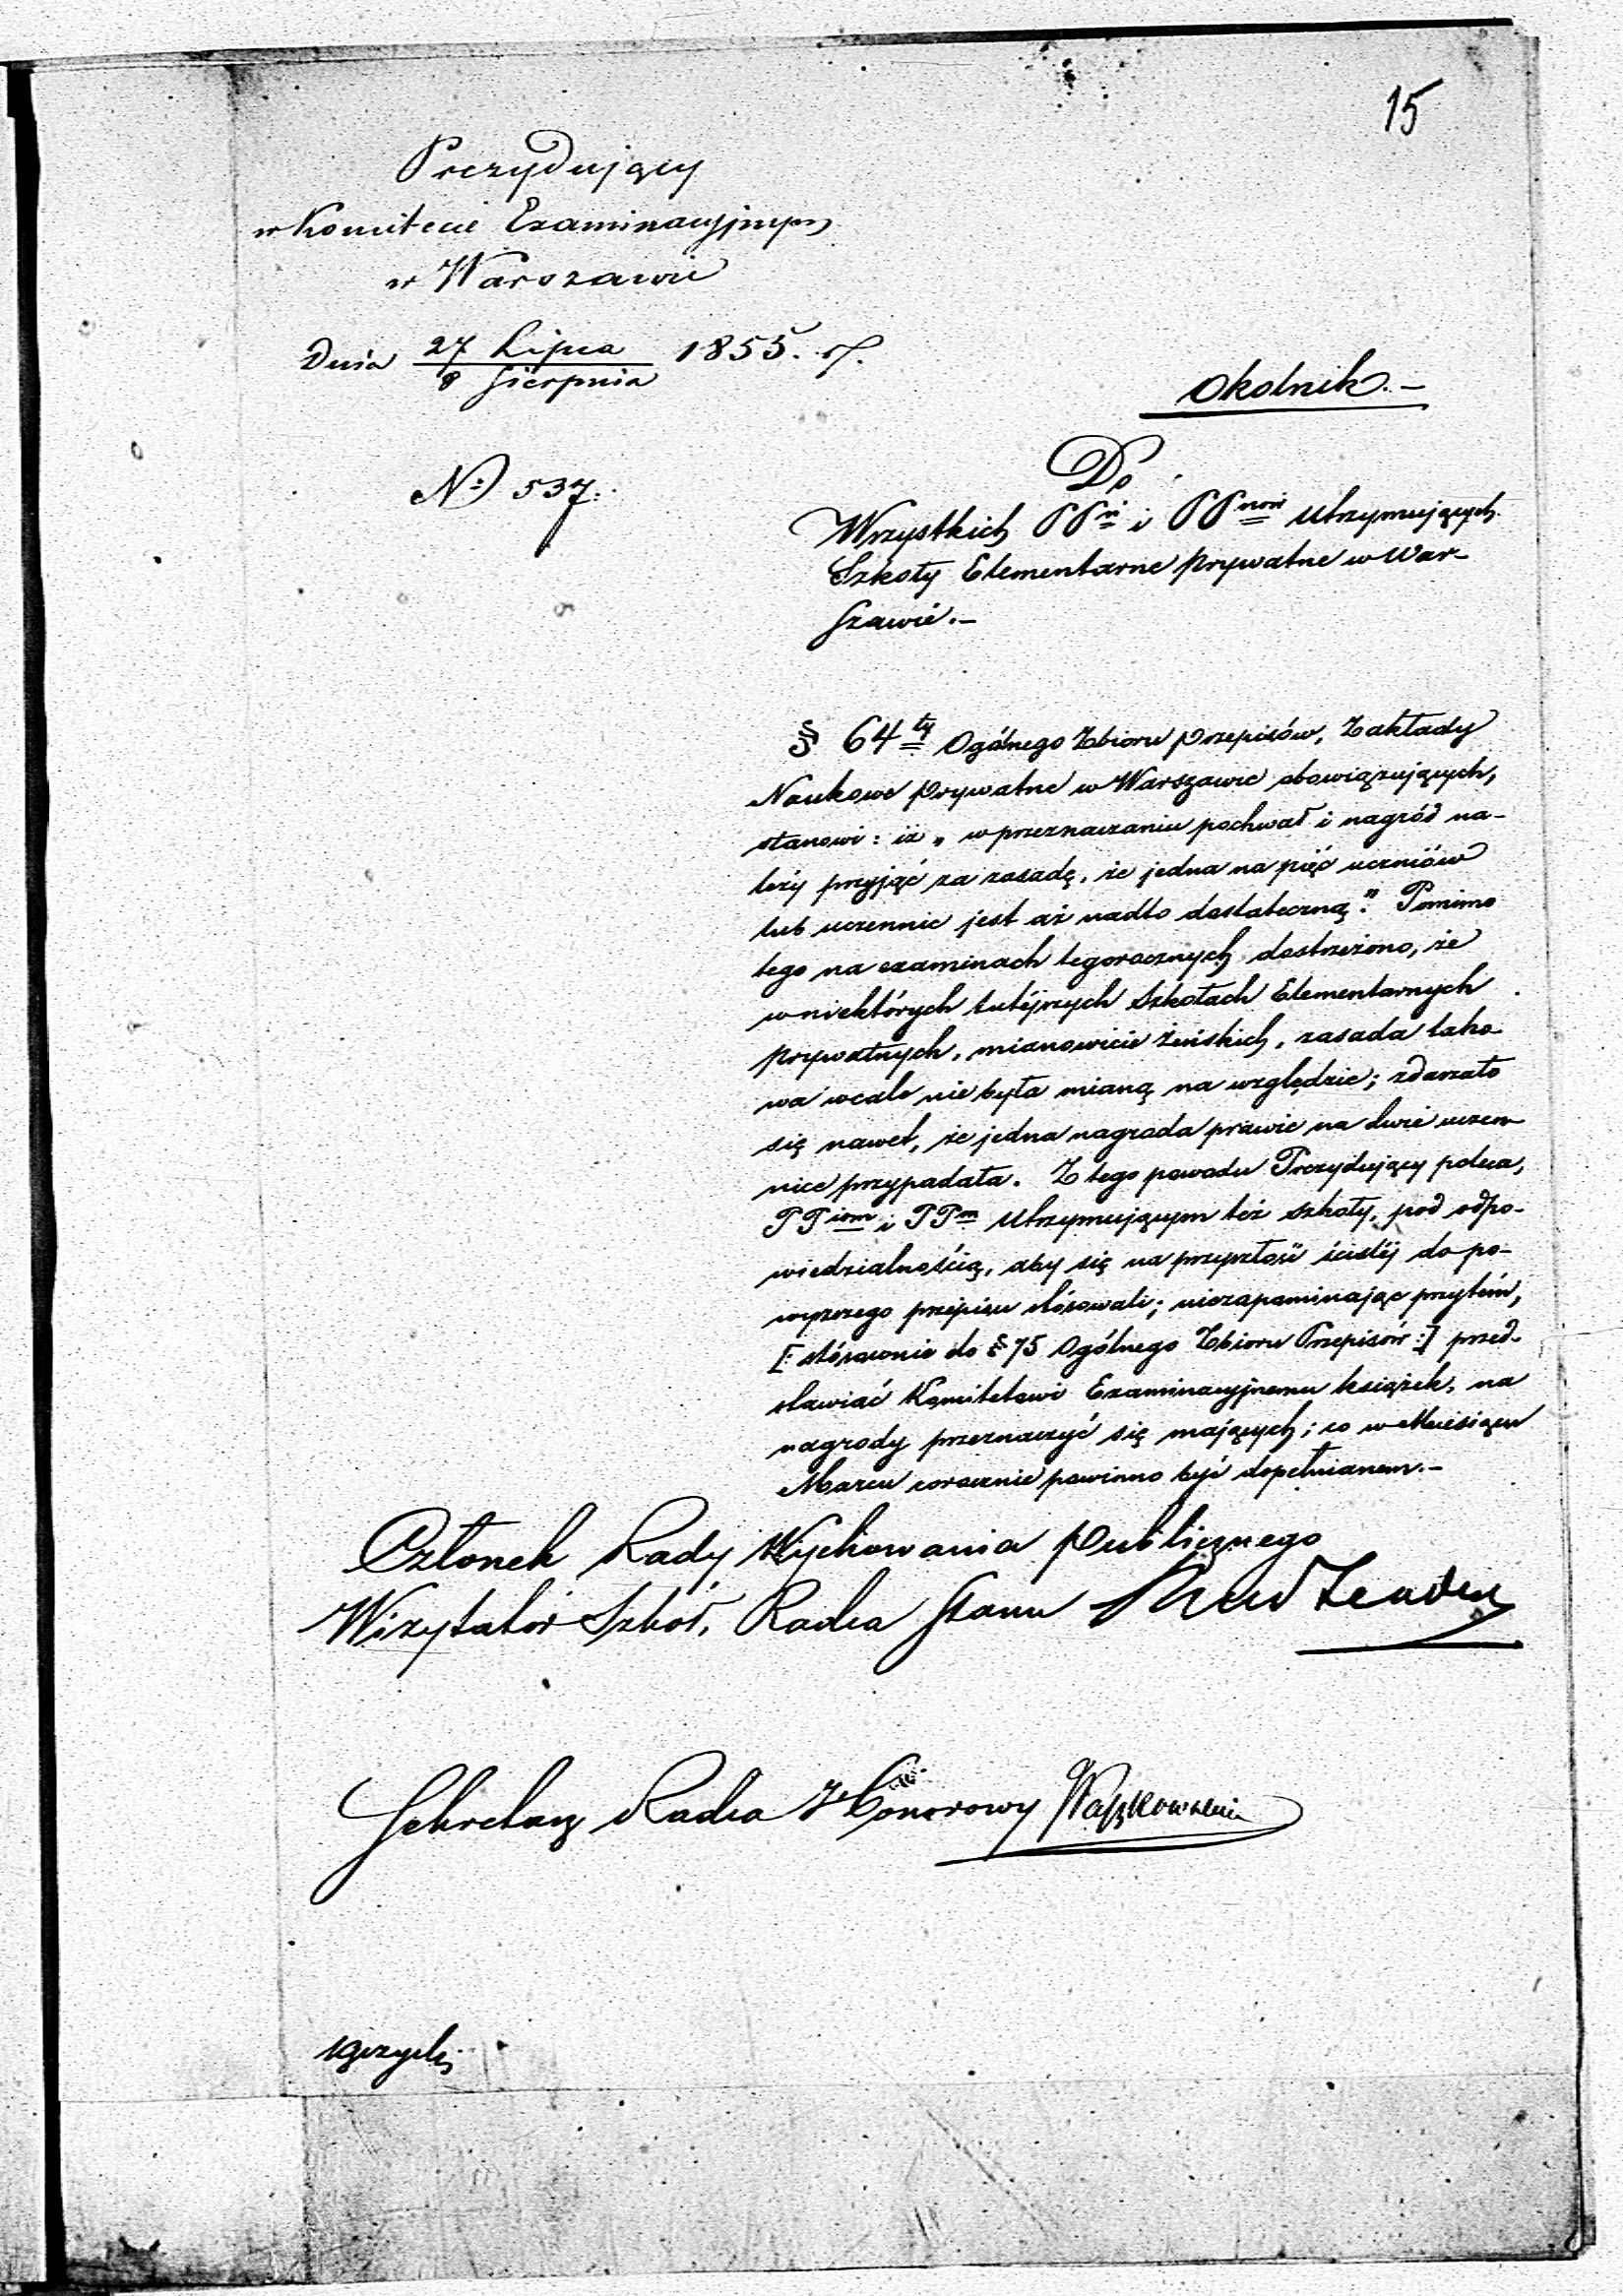 15
Prezydujący
w Komitecie Examinacyjnym
w Warszawie
Dnia 27 Lipca 1855. r.
8 Sierpnia
Okolnik.—
№ 537.
Do
Wszystkich PPń i PPnow Utrzymujących
Szkoły Elementarne prywatne w War-
szawie.—
§ 64ty Ogólnego Zbioru Przepisów, Zakłady
Naukowe Prywatne w Warszawie obowiązujących,
stanowi: iż „w przeznaczaniu pochwał i nagród na-
leży przyjąć za zasadę, że jedna na pięć uczniów
lub uczennic jest aż nadto dostateczną." Pomimo
tego na examinach tegorocznych dostrzeżono, że
w niektórych tutéjszych Szkołach Elementarnych
Prywatnych, mianowicie żeńskich, zasada tako-
wa wcale nie była mianą na względzie; zdarzało
się nawet, że jedna nagroda prawie na dwie uczen-
nice przypadała. Z tego powodu Prezydujący poleca,
PPiom i PPm Utrzymującym też szkoły, pod odpo-
wiedzialnością, aby się na przyszłość ściśléj do po-
wyższego przepisu stósowali; niezapominając przytém,
[: stósownie do § 75 Ogólnego Zbioru Przepisów :] przed-
stawiać Komitetowi Examinacyjnemu książek, na
nagrody przeznaczyć się mających; co w Miesiącu
Marcu corocznie powinno być dopełnianem.—
Członek Rady Wychowania Publicznego
Wizytator Szkół, Radca Stanu
Sekretarz Radca Honorowy